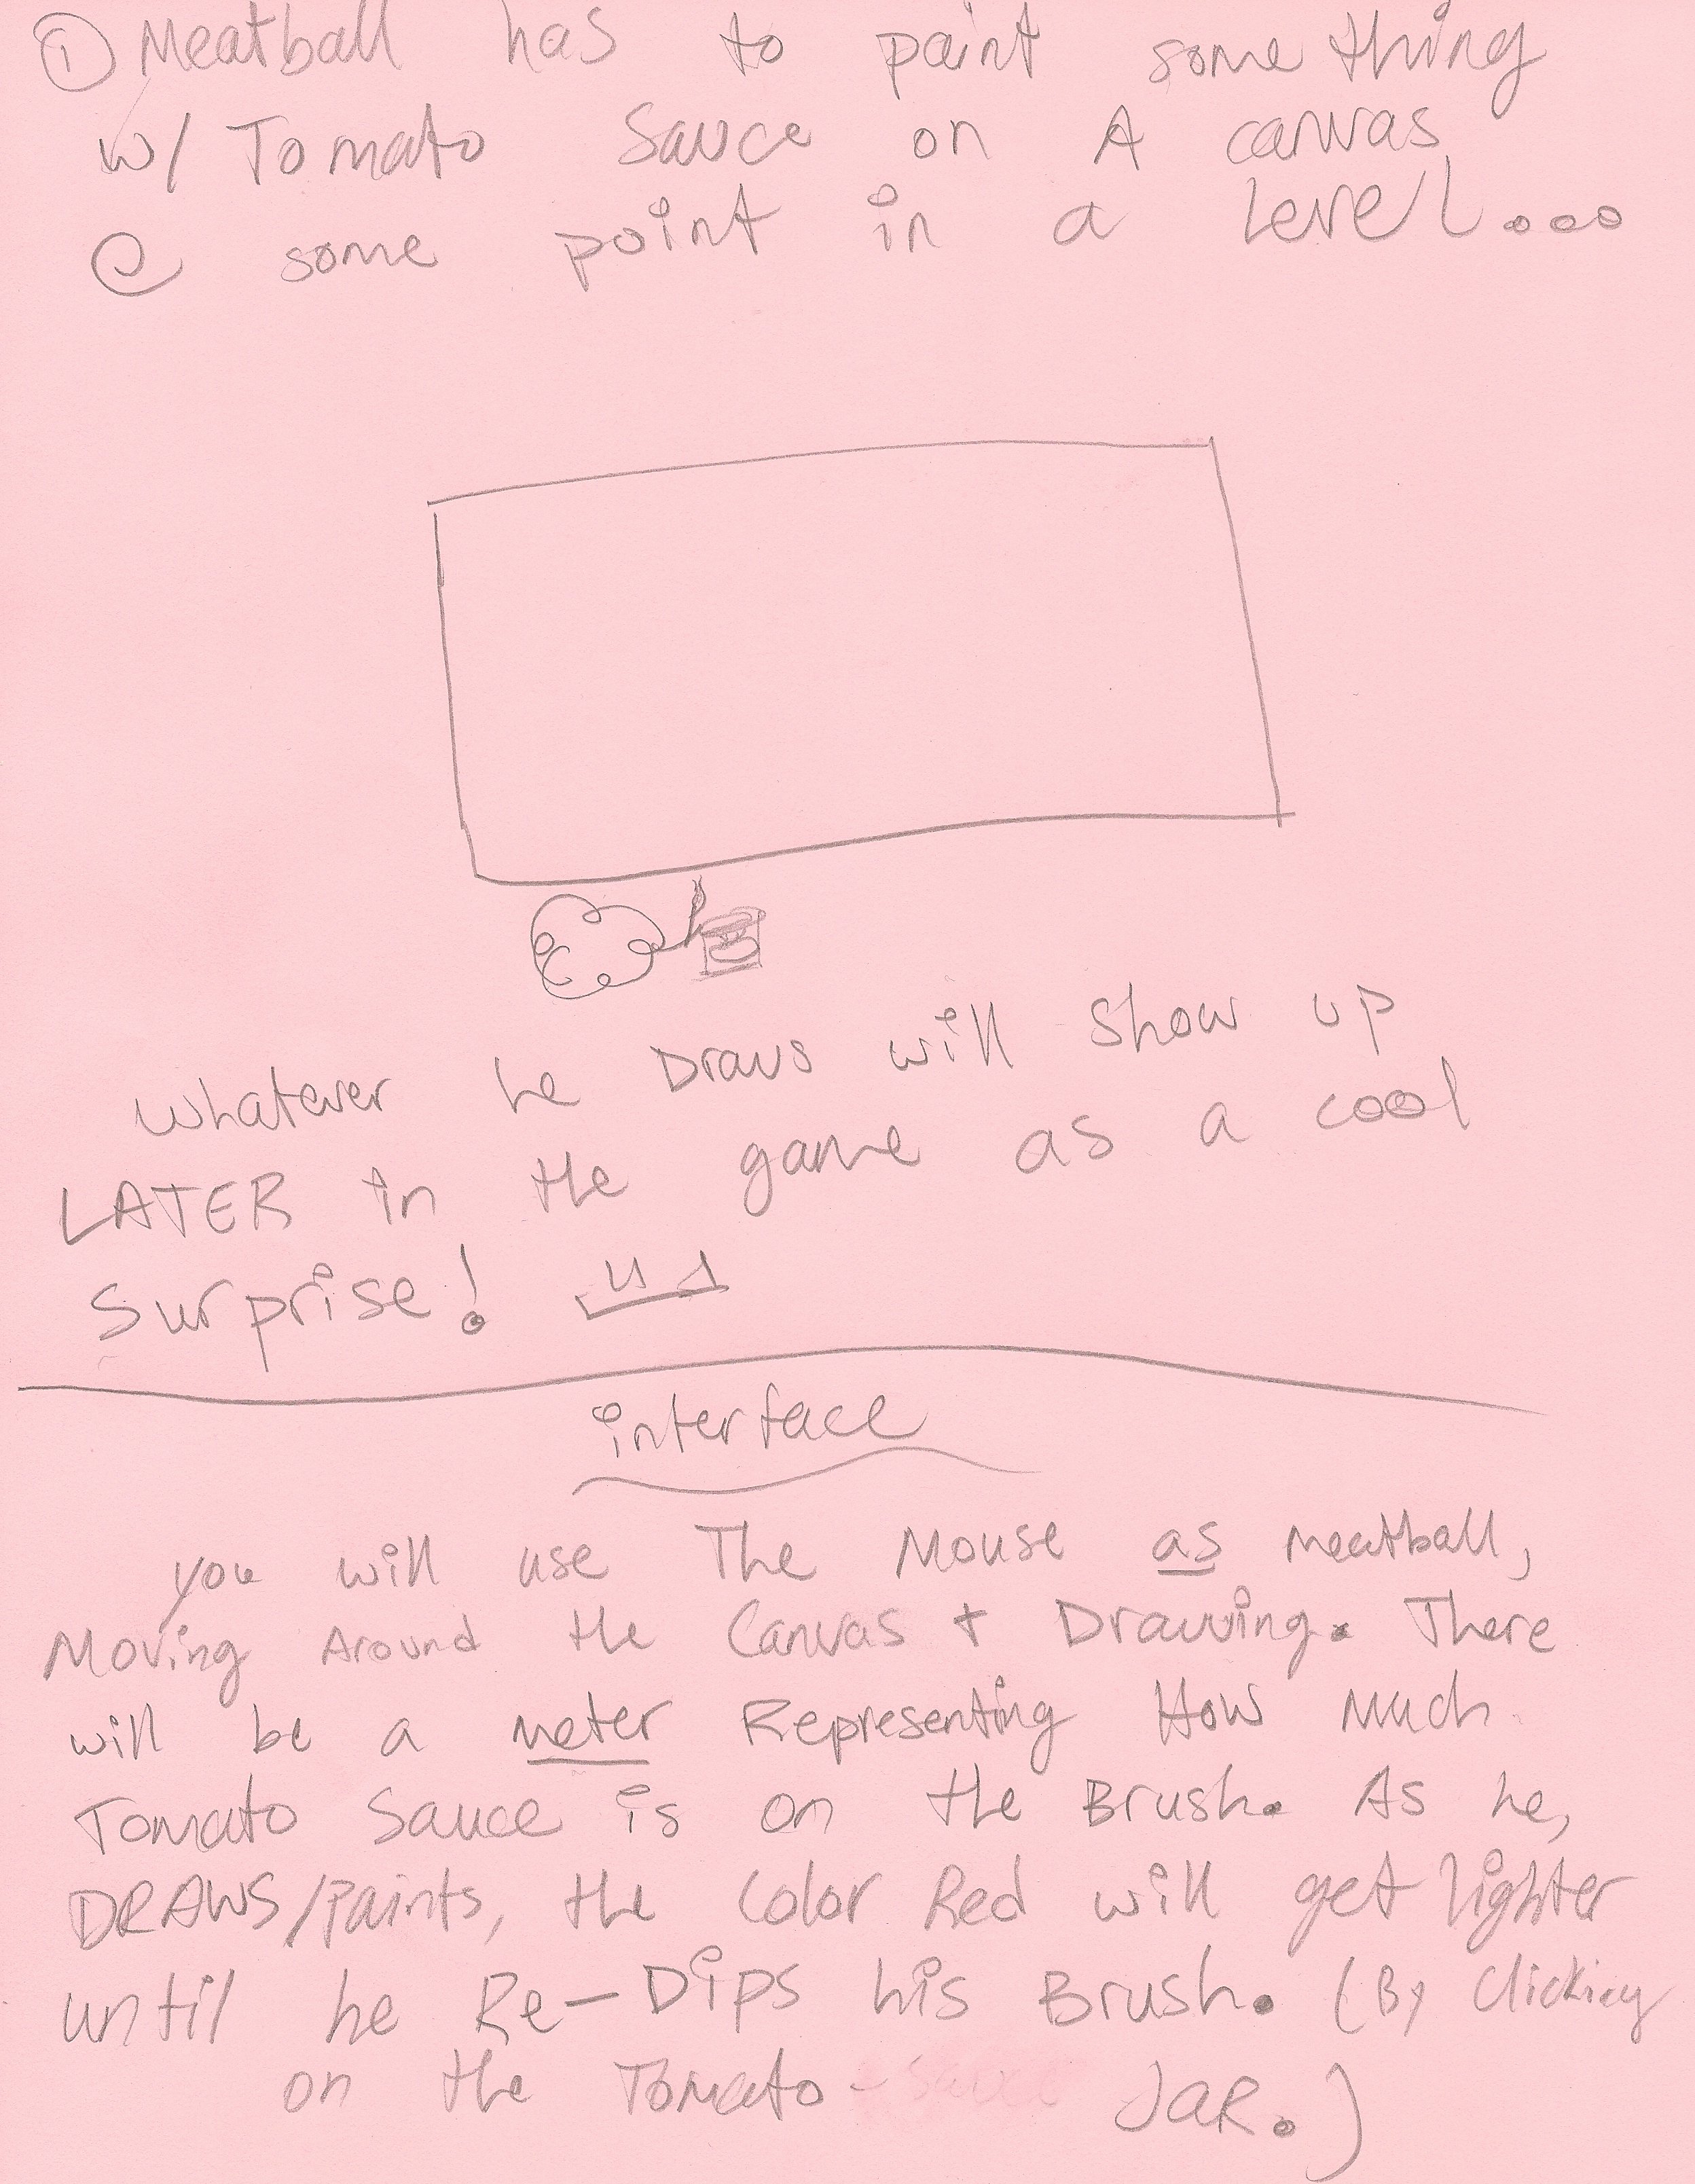 ① Meatball has to paint something
w/ Tomato Sauce on A canvas
@ some point in a Level...
Whatever he Draws will show up
LATER in the game as a cool
Surprise!
interface
you will use The Mouse as meatball,
Moving Around the Canvas + Drawing. There
will be a meter Representing How Much
Tomato Sauce is on the Brush. As he,
DRAWS/Paints, the Color Red will get lighter
until he Re-Dips his Brush. (By Clicking
on the Tomato - sauce JaR.)